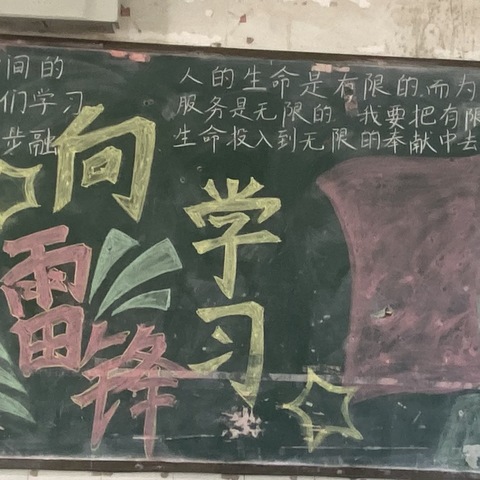 间的
们学习
步融
人的生命是有限的,而为
服务是无限的. 我要把有限
生命投入到无限的奉献中去
向
雷锋
学习